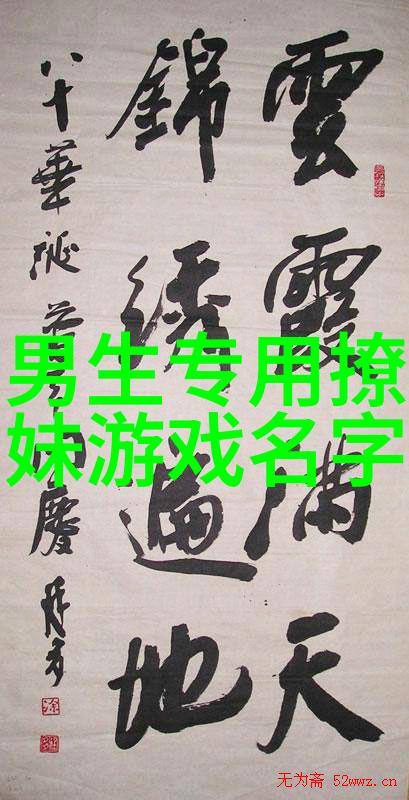 雲霞满天
錦绣遍地
八十華诞
男生专用撩
妹游戏名字
无为斋 52wwz.cn